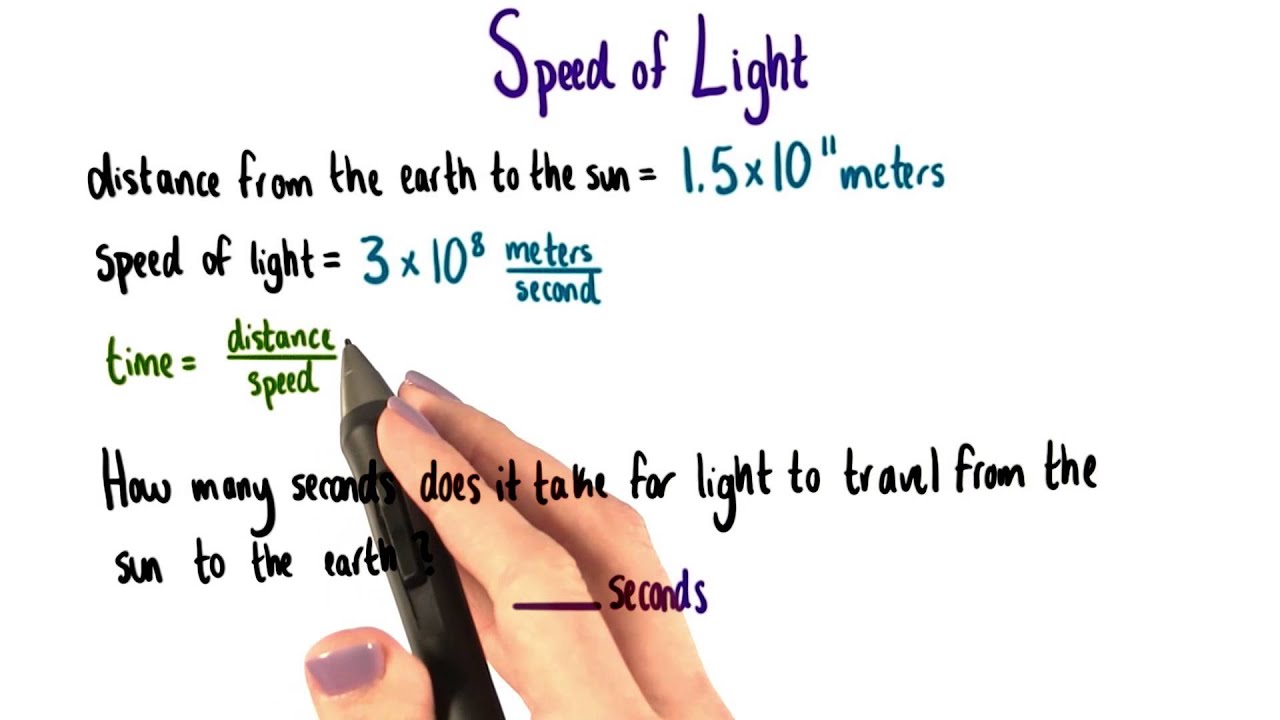 Speed of Light
distance from the earth to the sun = 1.5 × 10¹¹ meters
speed of light = 3 × 10⁸ meters/second
time = distance/speed
How many seconds does it take for light to travel from the
sun to the earth?
____ seconds